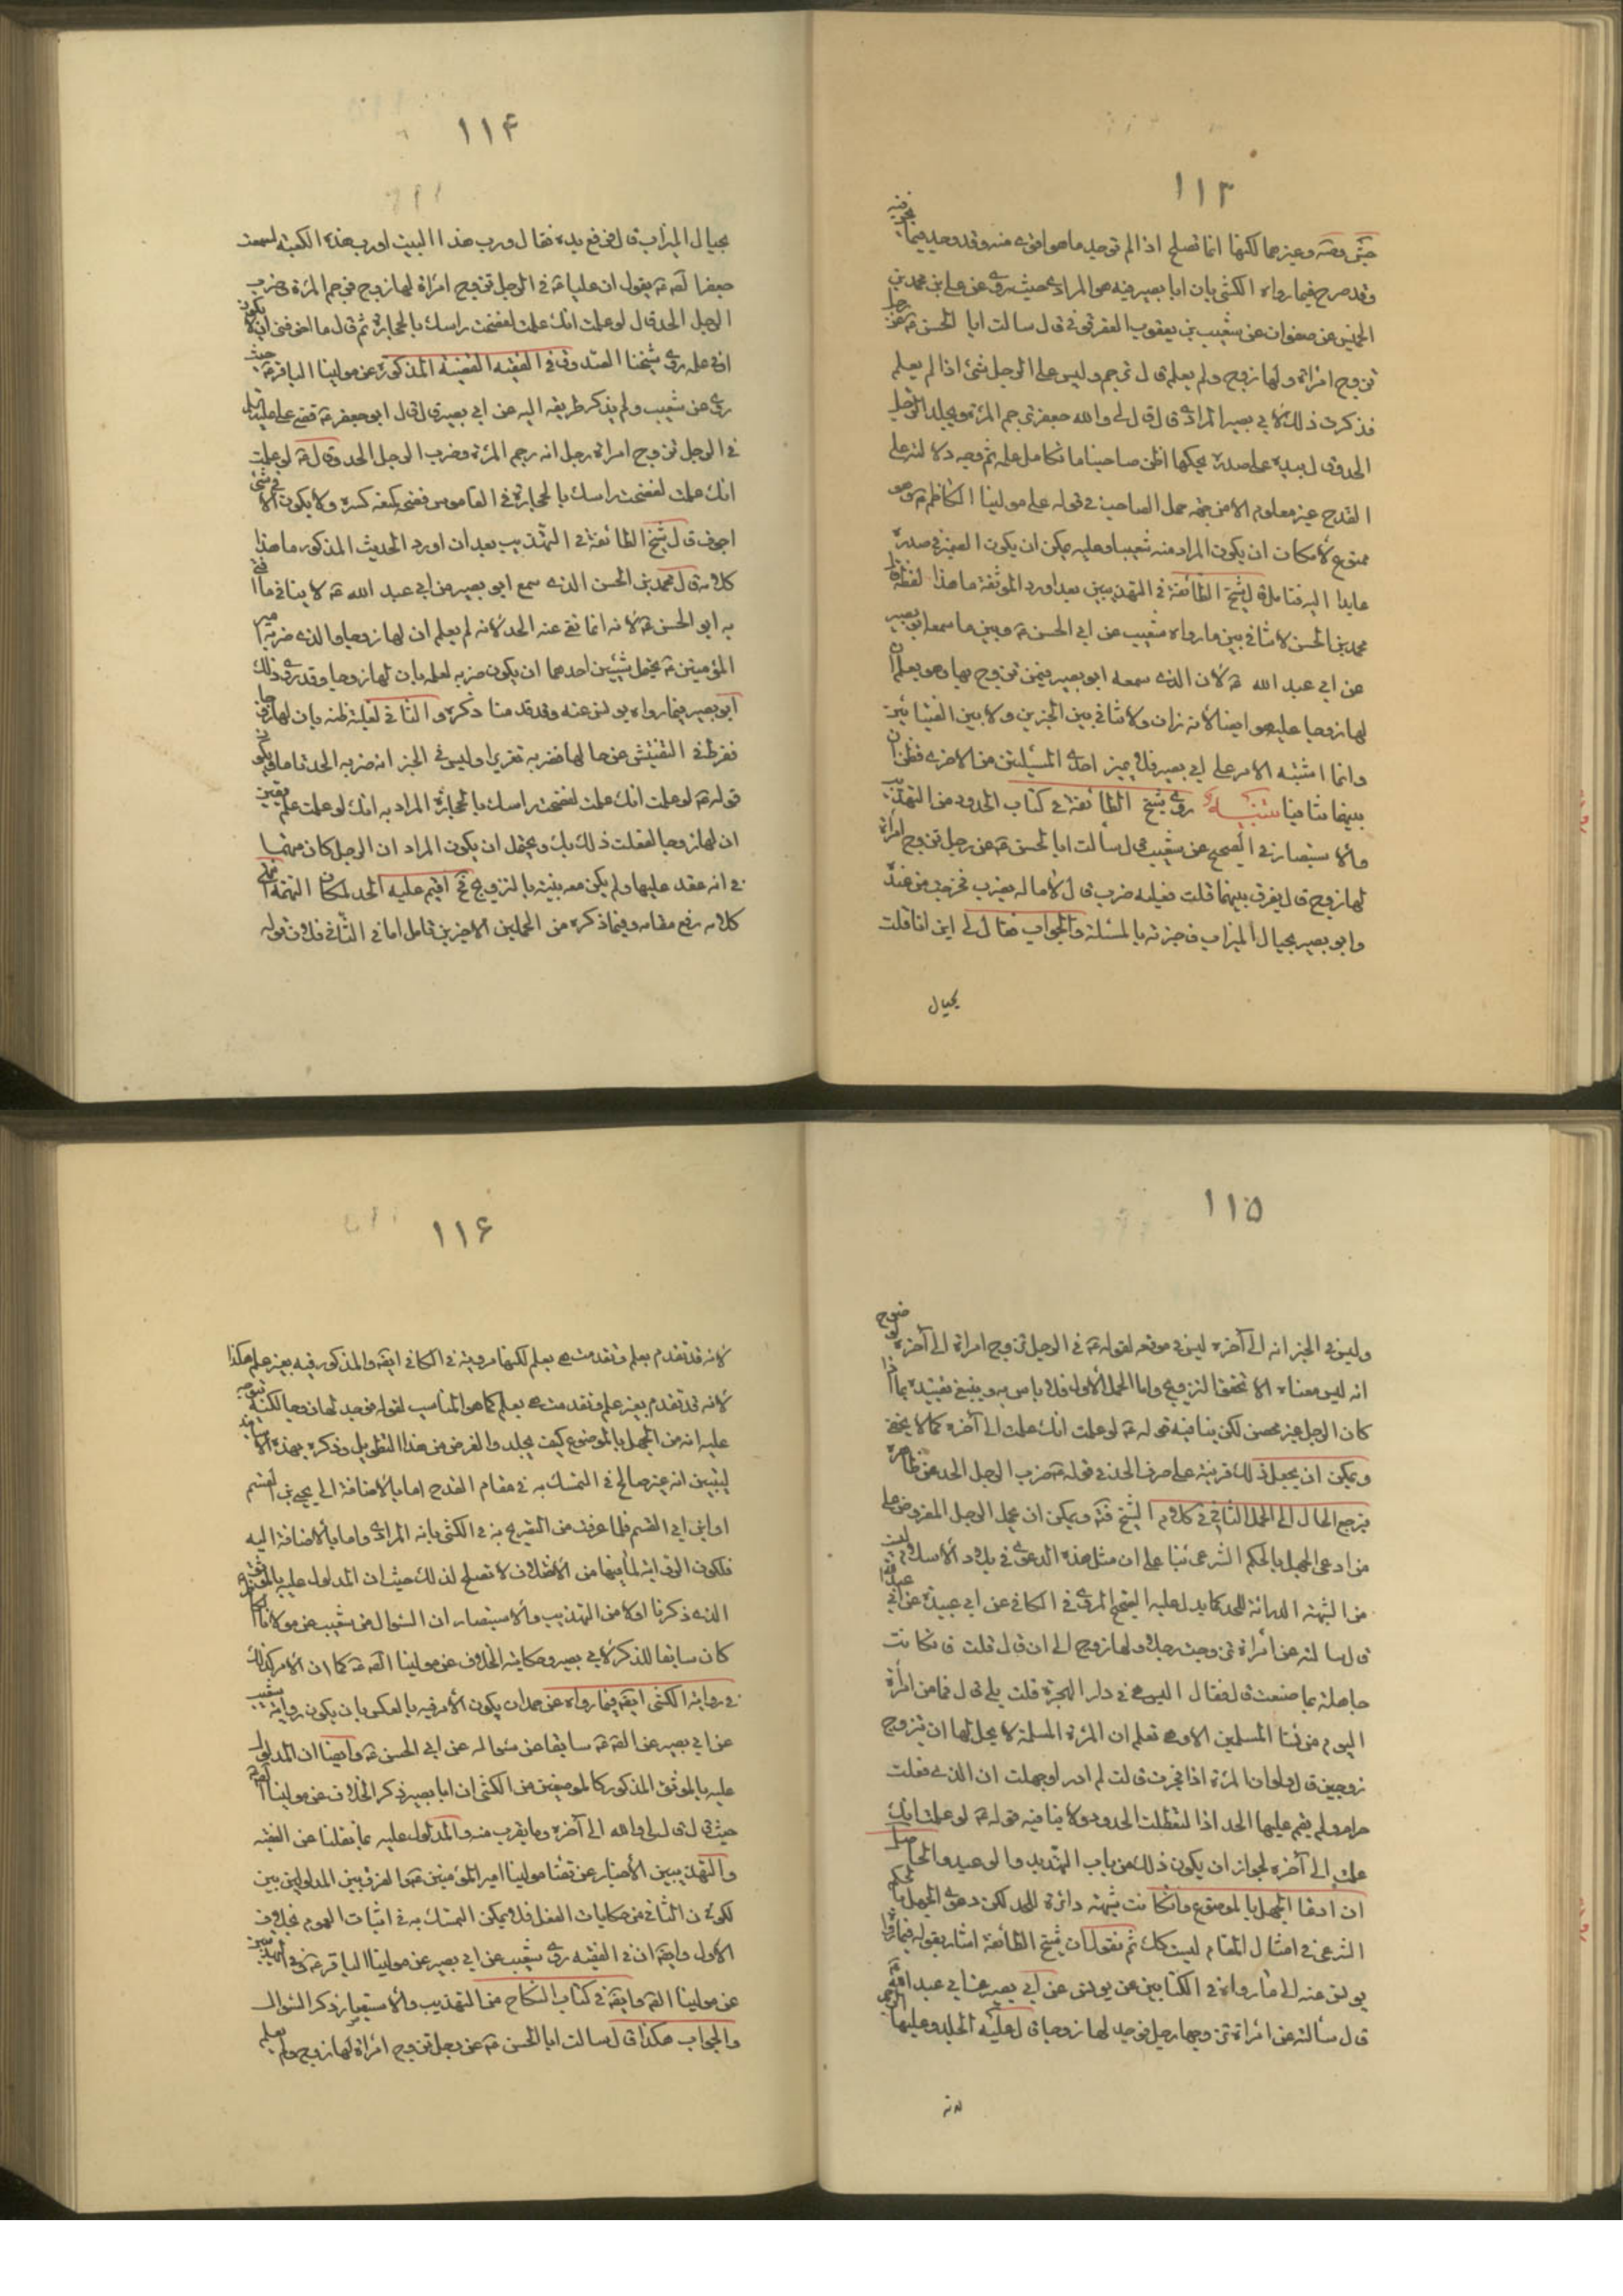 ١١٣
وقد صرح فيما رواه الكشي بان ابا بصير فيه هو المرادي حيث روى عن علي بن محمد بن
عن صفوان عن شعيب بن يعقوب العقرقوفي قال سالت ابا الحسن عن رجل
تزوج امراة ولها زوج ولم يعلم قال ترجم وليس على الرجل شئ اذا لم يعلم
فذكرت ذلك لابي بصير المرادي قال قال لي والله جعفر ترجم المرئة ويجلد الرجل
الحد وقال بيده على صدره يحكها اظن صاحبنا ما تكامل علمه ثم وجه دلالته على
القدح غير معلوم الا من جهة حمل الصاحب في قوله على مولينا الكاظم وهو
ممنوع لامكان ان يكون المراد منه شعيبا وعليه يمكن ان يكون الضمير في صدره
عايدا اليه فتامل قال شيخ الطائفة في التهذيبين بعد اورد الموثقة ما هذا لفظه قال
محمد بن الحسن لا تنافي بين ما رواه شعيب عن ابي الحسن وبين ما سمعه ابو بصير
عن ابي عبد الله لان الذي سمعه ابو بصير فيمن تزوج بها وهو يعلم ان
لها زوجا عليه هو ايضا لانه زان ولا تنافي بين الخبرين ولا بين الفتيائين
وانما اشتبه الامر على ابي بصير فلم يميز احدى المسئلتين من الاخرى فظن ان
بينهما تنافيا تنبيه روى شيخ الطائفة في كتاب الحدود من التهذيب
والاستبصار في الصحيح عن شعيب قال سألت ابا الحسن عن رجل تزوج امرأة
لها زوج قال يفرق بينهما قلت فعليه ضرب قال لا ما له يضرب فخرجت من عنده
وابو بصير بحيال الميزاب فاخبرته بالمسئلة والجواب فقال لي اين انا قلت
بحيال
١١۴
بحيال الميزاب قال فرفع يده فقال ورب هذا البيت او رب هذه الكعبة لسمعت
جعفرا يقول ان عليا في الرجل تزوج امراة لها زوج فرجم المرئة وضرب
الرجل الحد قال لو علمت انك علمت لفضخت راسك بالحجارة ثم قال ما اخوفني ان لا يكون
اوتي علمه روى شيخنا الصدوق في الفقيه القضية المذكورة عن مولينا الباقر حيث
روى عن شعيب ولم يذكر طريقه اليه عن ابي بصير قال قال ابو جعفر قضى علي
في الرجل تزوج امراة رجل انه رجم المرئة وضرب الرجل الحد وقال لو علمت
انك علمت لفضخت راسك بالحجارة في القاموس فضخه كمنعه كسره ولا يكون الا في شئ
اجوف قال شيخ الطائفة في التهذيب بعد ان اورد الحديث المذكور ما هذا
كلامه قال محمد بن الحسن الذي سمع ابو بصير من ابي عبد الله لا ينافي ما افتى
به ابو الحسن لانه انما نفى عنه الحد لانه لم يعلم ان لها زوجا والذي ضربه امير
المؤمنين يحتمل شيئين احدهما ان يكون ضربه لعلمه بان لها زوجا وقد روى ذلك
ابو بصير فيما رواه يونس عنه وقد قدمنا ذكره والثاني لغلبة ظنه بان لها زوجا
ففرط في التفتيش عن حالها فضربه تعزيرا وليس في الخبر انه ضربه الحد تاما فيكون
قوله لو علمت انك علمت لفضخت راسك بالحجارة المراد به انك لو علمت علم يقين
ان لها زوجا لفعلت ذلك بك ويحتمل ان يكون المراد ان الرجل كان متهما
في انه عقد عليها ولم يكن معه بينة بالتزويج اقيم عليه الحد لمكان التهمة
كلامه رفع مقامه وفيما ذكره من الحملين الاخيرين تامل اما في الثاني فلان قوله
١١۵
وليس في الخبر انه الى آخره ليس في موقعه لقوله في الرجل تزوج امراة الى آخره
انه ليس معناه الا تحقق التزويج واما الحمل الاول فلا باس به وينبغي تقييده بما اذا
كان الرجل غير محصن لكن ينافيه قوله لو علمت انك علمت الى آخره كما لا يخفى
ويمكن ان يجعل ذلك قرينة على صرف الحد في قوله ضرب الرجل الحد عن ظاهره
فيرجع الحال الى الحمل الثاني في كلام الشيخ ويمكن ان يحمل الرجل المفروض على
من ادعى الجهل بالحكم الشرعي بناء على ان مثل هذه الدعوى في بلاد الاسلام ليست
من الشبهة الدارئة للحد كما يدل عليه الصحيح المروي في الكافي عن ابي عبيدة عن ابي عبد الله
قال سالته عن امرأة تزوجت رجلا ولها زوج الى ان قال قلت فان كانت
جاهلة بما صنعت قال فقال اليس هي في دار الهجرة قلت بلى قال فما من امرأة
اليوم من نساء المسلمين الا وهي تعلم ان المرئة المسلمة لا يحل لها ان تزوج
زوجين قال ولو ان المرئة اذا فجرت قالت لم ادر او جهلت ان الذي فعلت
حرام ولم يقم عليها الحد اذا لتعطلت الحدود ولا ينافيه قوله لو علمت انك
علمت الى آخره لجواز ان يكون ذلك من باب التهديد والوعيد والحاصل
ان ادعاء الجهل بالموضوع وان كانت شبهة دارئة للحد لكن دعوى الجهل بالحكم
الشرعي في امثال المقام ليست كك ثم نقول ان شيخ الطائفة اشار بقوله فيما رواه
يونس عنه الى ما رواه في الكتابين عن يونس عن ابي بصير عن ابي عبد الله
قال سألته عن امرأة تزوجها رجل فوجد لها زوجا قال عليه الجلد وعليها الرجم
لانه
١١۶
لانه قد تقدم بعلم وتقدمت هي بعلم لكنها مروية في الكافي ايضا والمذكور فيه بغير علم هكذا
لانه قد تقدم بغير علم وتقدمت هي بعلم كما هو المناسب لقوله فوجد لها زوجا لكنه
عليه انه من الجهل بالموضوع كيف يجلد والغرض من هذا التطويل وذكره بهذه
ليتبين انه غير صالح في التمسك به في مقام القدح اما بالاضافة الى يحيى بن القسم
او ابن ابي القسم فلما عرفت من التصريح به في الكشي بانه المرادي واما بالاضافة اليه
فلكون الوثاقة لما فيها من الاختلاف لا تصلح لذلك حيث ان المدلول عليه
الذي ذكرنا اولا من التهذيب والاستبصار ان السؤال من شعيب عن مولانا
كان سابقا للذكر لابي بصير وحكايته الخلاف عن مولينا كما ان الامر كذلك
في رواية الكشي فيما رواه عن حمدان يكون الامر فيه بالعكس بان يكون رواية شعيب
عن ابي بصير عن سابقا عن سؤاله عن ابي الحسن وايضا ان المدلول
عليه بالموثق المذكور كالموضعين من الكشي ان ابا بصير ذكر الخلاف عن مولينا
حيث قال قال لي والله الى آخره وما يقرب منه والمدلول عليه بما نقلنا عن الفقيه
والتهذيبين الاخبار عن قضاء مولينا امير المؤمنين والفرق بين المدلولين بين
لكون الثاني من حكايات الفعل فلا يمكن التمسك به في اثبات العموم بخلاف
الاول وايضا ان في الفقيه روى شعيب عن ابي بصير عن مولينا الباقر وفي
عن مولينا وايضا في كتاب النكاح من التهذيب والاستبصار ذكر السؤال
والجواب هكذا قال سالت ابا الحسن عن رجل تزوج امرأة لها زوج ولم يعلم